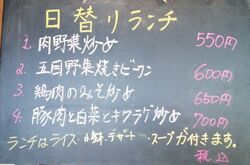 日替りランチ
1. 肉野菜炒め 550円
2. 五目野菜焼きビーフン 600円
3. 鶏肉のみそ炒め 650円
4. 豚肉と白菜とキクラゲ炒め 700円
ランチはライス・小鉢・デザート・スープが付きます。
税込